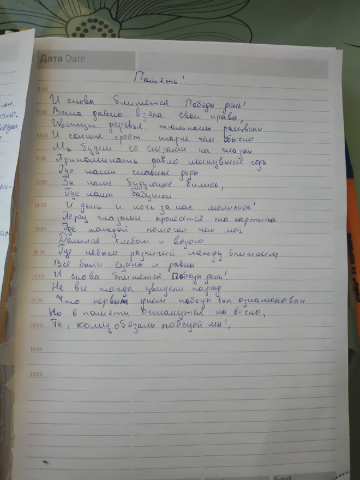 Дата Date
Память!
И снова близится Победы день!
Весна давно взяла свои права,
деревья, тюльпаны
И солнце греет жарче чем обычно
Мы будем со слезами на глазах
Припоминать давно минувший год
Где наши славные деды
За наше будущее бились,
Где наши бабушки
И день и ночь за нас молились!
Перед глазами пронесётся та картина
Где каждый помогал чем мог
Делился хлебом и водою
Где небыло различий между
Все были едины и равны
И снова близится Победы день!
Не все тогда увидели парад
Что первым днем победы был ознаменован
Но в памяти останутся на вечно,
Те, кому обязаны победой мы!,